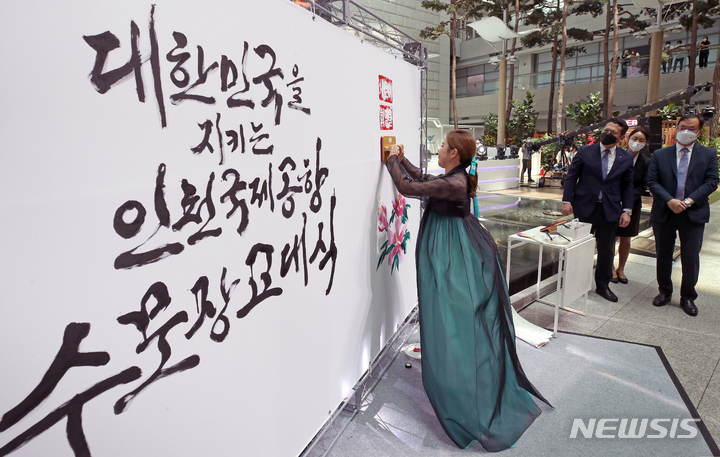 대한민국을
지키는
인천국제공항
수문장교대식
NEWSIS